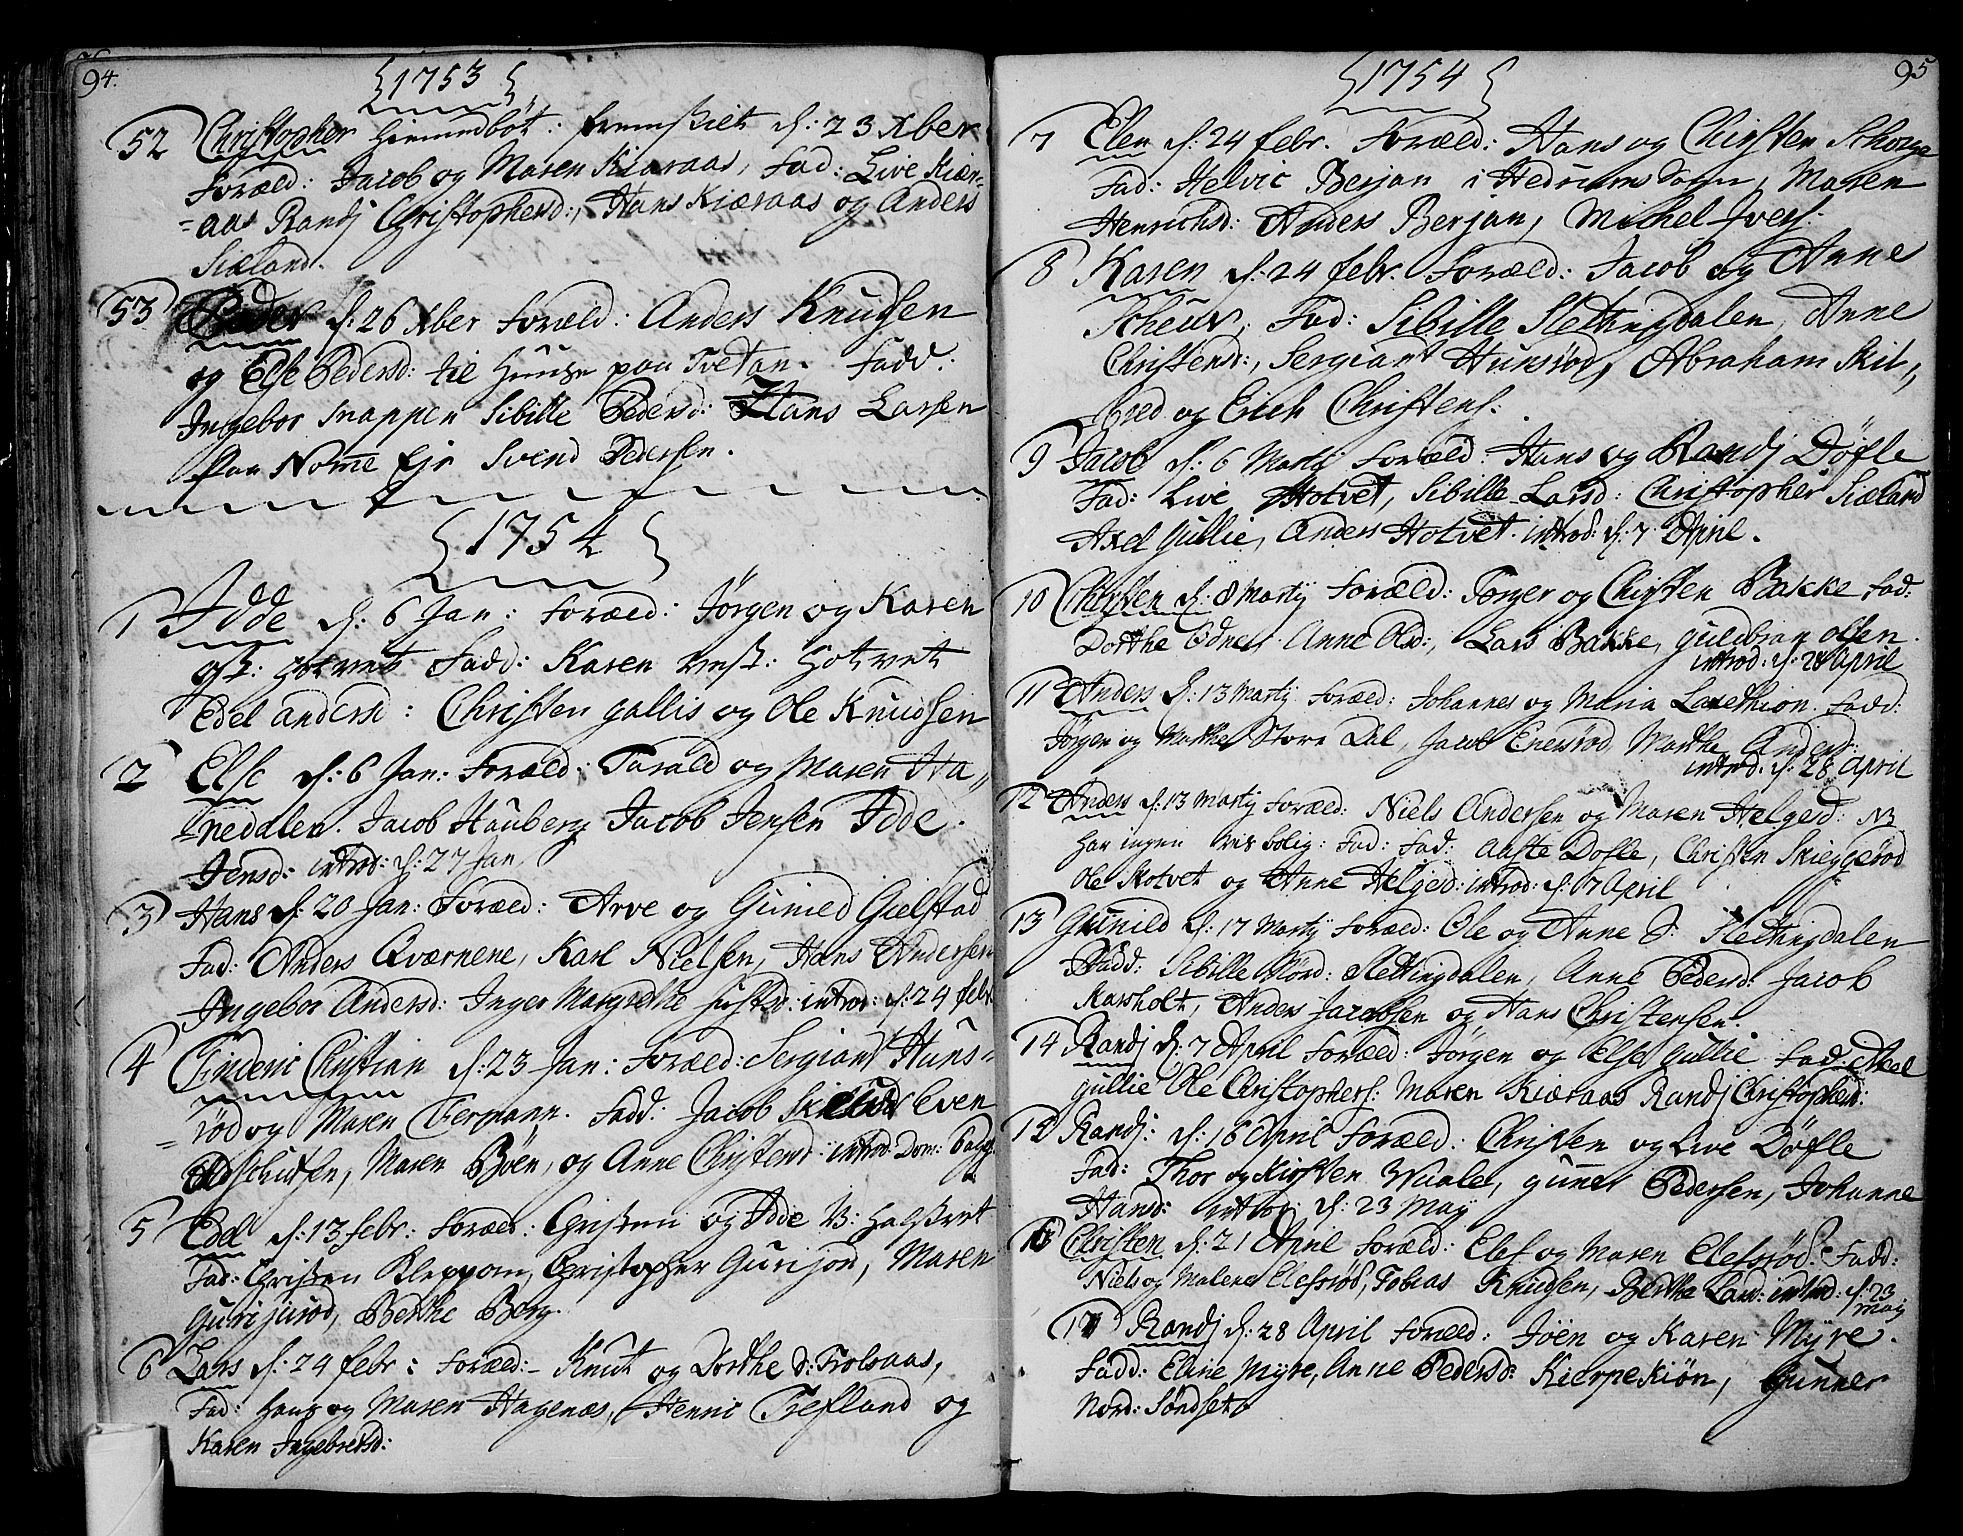 94.
{1753}
52 Christopher hiemmedöbt: fremstilt d: 23 Xber
Foræld: Jacob og Maren Kiæraas, Fad: Live Kiær-
-aas Randj Christophersd:, Hans Kiæraas og Anders
Siæland.
53 Peder d: 26 Xber Foræld: Anders Knudsen
og Else Pedersd: til Huuse paa Tvetan. Fadd:
Ingebor Snappen Sibille Pedersd: Hans Larsen
paa Nomme Eje Svend Pedersen.
{1754}
1 Idde d: 6 Jan: Foræld: Jørgen og Karen
øst: Hotvet Fadd: Karen vest: Hotvet
Edel Andersd: Christen Gallis og Ole Knudsen
2 Else d: 6 Jan: Foræld: Tarald og Maren Ha-
-nedalen. Jacob Hauberg Jacob Jensen Idde
Jensd: introd: d: 27 Jan
3 Hans d: 20 Jan: Foræld: Arve og Gunild Gielstad
Fad: Anders Qværnene, Karl Nielsen, Hans Andersen
Ingebor Andersd: Inger Margrethe introd: d: 24 febr
4 Frideric Christian d: 23 Jan: Foræld: Sergiant Huns-
-rød og Maren Fermann. Fadd: Jacob Even
Maren Böen, og Anne Christensd introd: Dom:
5 Edel d: 13 febr: Foræl: Christen og Idde V: Halstvet
Fad: Christen Kleppan, Christopher Gurijord, Maren
Gurijurod, Berthe Borg.
6 Lars d: 24 febr: Foræld: Knut og Dorthe S: Trolsaas,
Fad: Hans og Maren Hagenæs, Henric Trefland og
Karen Ingebretsd:
{1754}
95
7 Elen d: 24 febr. Foræld: Hans og Chirsten Schorge
Fad: Helvic Berjan i Hedrums Sogn, Maren
Henrichsd: Anders Berjan, Michel Ivers:
8 Karen d: 24 febr. Foræld: Jacob og Anne
Scheur, Fad: Sibille Slettingdalen, Anne
Christensd:, Sergiant Hunsrød, Abraham Skil-
-bred og Erich Christens:
9 Jacob d: 6 Martj Foræld: Hans og Randj Döfle
Fad: Live Hotvet, Sibille Larsd: Christopher Siæland
Axel Gullie, Anders Hotvet. introd: d: 7 April.
10 Chirsten d: 8 Martj Foræld: Torger og Chirsten Bakke Fad:
Dorthe Anne Olsd:, Lars Bakke, Guldbran Olsen
introd: d: 28 April
11 Anders d: 13 Martj Foræld: Johannes og Maria Fadd:
Jørgen og Marthe Store Dal, Jacob Enersrød Marthe Andersd:
introd: d: 28 April
12 Anders d: 13 Martj Foræld: Niels Andersen og Maren Helgesd: NB
har ingen vis bolig: Fad: Fad: Aaste Dofle, Christen Skieggerød
Ole Skotvet og Anne Helgesd: introd: d: 7 April
13 Gunild d: 17 Martj Foræld: Ole og Anne S: Slettingdalen
Fadd: Sibille Nord: Slettingdalen, Anne Pedersd: Jacob
Karsholt, Anders Jacobsen og Hans Christensen.
14 Randj d: 7 April Foræld: Jørgen og Else Gullie Fad: Axel
Gullie Ole Christophers: Maren Kiæraas Randj Christophersd:
15 Randj: d: 16 April Foræld: Christen og Live Döfle
Fad: Thor og Kirsten Waale, Gunner Pedersen, Johanne
Hansd: introd: d: 23 May
16 Christen d: 21 April Foræld: Elef og Maren Elefsrød: Fadd:
Niels og Malene Elefsrød, Tobias Knudsen, Berthe Land: introd: d: 23
May
17 Randj d: 28 April Foræld: Jöen og Karen Myre.
Fadd: Eline Myre, Anne Pedersd: Kierpekiön, Gunner
Nord: Søndset